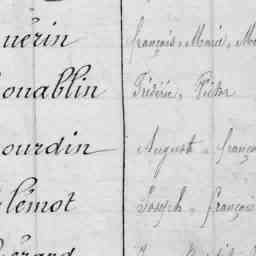 uérin françois, Marie, M
ouablin Frédéric, Victor
ourdin Auguste, françoi
lémot Joseph, françois
érand